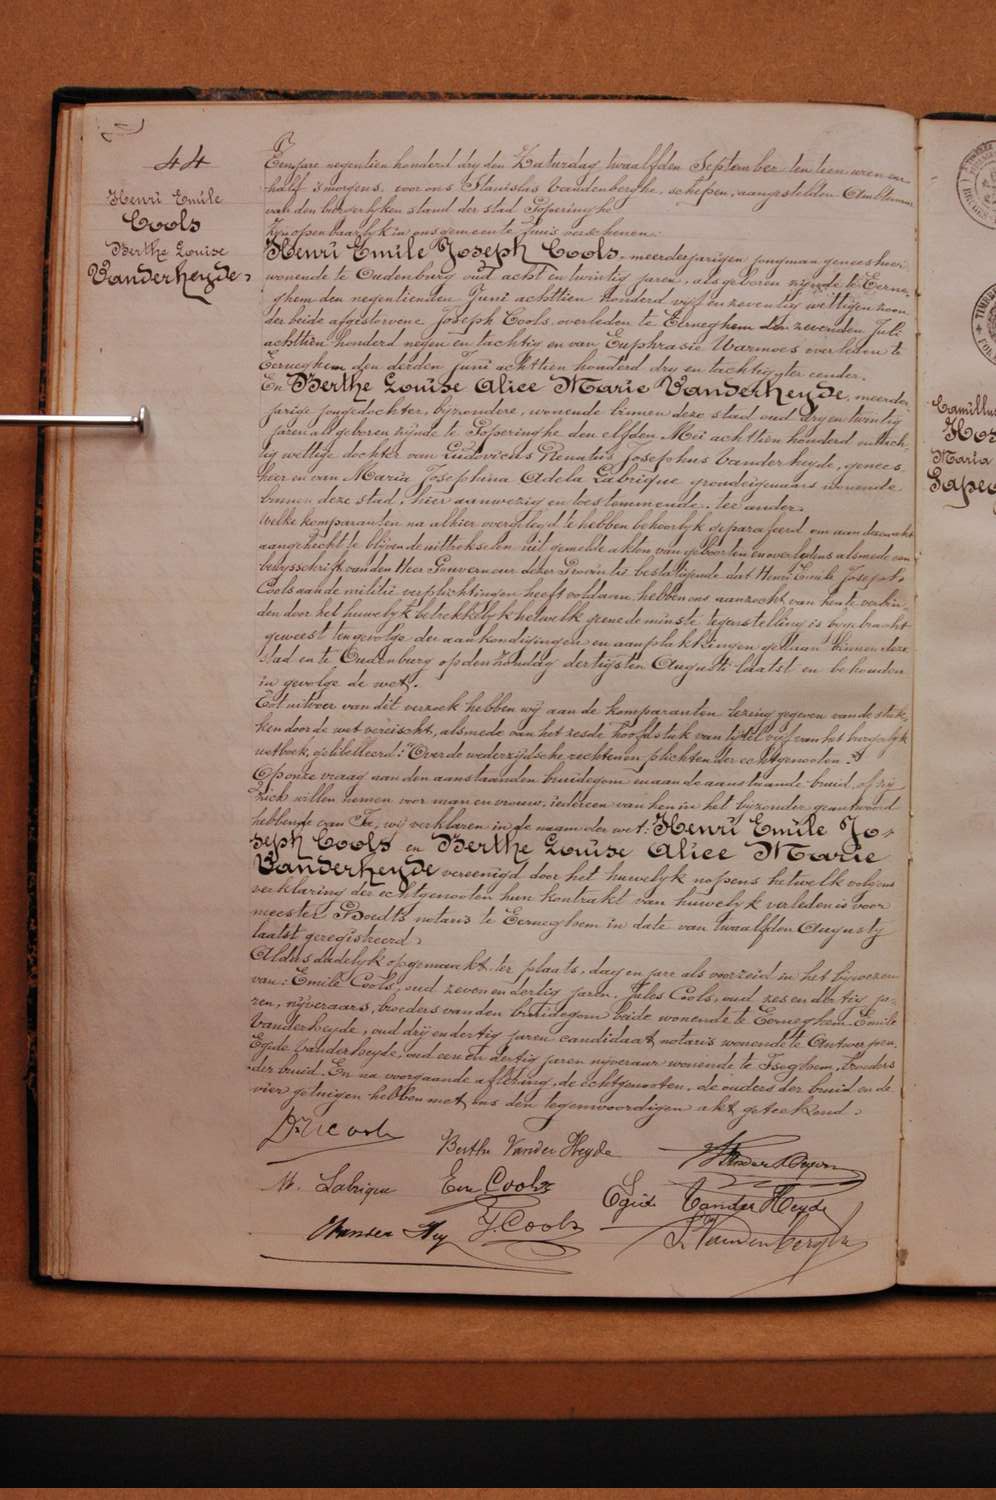 44
Henri Emile
Cools
Berthe Louise
Vanderheyde,
Eenjare negentien honderd dry den Zaturdag twaalfden September ten tien uren en
half 's morgens, voor ons Stanislas Vandenberghe, schepen, aangestelden Ambtenaar
van den burgerlyken stand der stad Poperinghe
zyn openbaarlyk in ons gemeente huis verschenen:
Henri Emile Joseph Cools, meerderjarigen jongman geneesheer
wonende te Oudenburg oud acht en twintig jaren, als geboren zijnde te Eerne-
ghem den negentienden Juni achttien honderd vyf en zeventig wettigen zoon
der beide afgestorvene Joseph Cools overleden te Eerneghem den zevenden Juli
achttien honderd negen en tachtig en van Euphrasie Warmoes overleden te
Eerneghem den derden Juni achttien honderd dry en tachtig, ter eender.
En Berthe Louise Alice Marie Vanderheyde, meerder-
jarige jongedochter, byzondere, wonende binnen deze stad oud dry en twintig
jaren als geboren zijnde te Poperinghe den elfden Mei achttien honderd en tach-
tig wettige dochter van Ludovicus Renatus Josephus Vanderheyde, genees-
heer en van Maria Josephina Adela Labrique grondeigenaars wonende
binnen deze stad, hier aanwezig en toestemmende, ter ander.
Welke komparanten na alhier overgelegd te hebben behoorlyk geparafeerd om aan dezen akt
aangehecht te blijven de uittrekselen uit gemelde akten van geboorten en overlydens alsmede een
bewysschrift van den Heer Gouverneur dezer Provintie bestatigende dat Henri Emile Joseph
Cools aan de militie verplichtingen heeft voldaan, hebben ons aanzocht van hen te verbin-
den door het huwelyk betrekkelyk hetwelk geene de minste tegenstelling is bygebracht
geweest ten gevolge der aankondigingen en aanplakkingen gedaan binnen deze
stad en te Oudenburg op den zondag dertigsten Augusti laatst en behouden
in gevolge de wet.
Tot uitvoer van dit verzoek hebben wij aan de komparanten lezing gegeven van de stuk-
ken door de wet vereischt, alsmede van het zesde hoofdstuk van titel vyf van het burgerlyk
wetboek, getitelleerd: "Over de wederzijdsche rechten en plichten der echtgenooten."
Op onze vraag aan den aanstaanden bruidegom en aan de aanstaande bruid, of zij
zich willen nemen voor man en vrouw, iedereen van hen in het byzonder geantwoord
hebbende van Ja, wij verklaren in de naam der wet: Henri Emile Jo-
seph Cools en Berthe Louise Alice Marie
Vanderheyde vereenigd door het huwelyk nopens hetwelk volgens
verklaring der echtgenooten hun kontrakt van huwelyk verleden is voor
meester Boedts notaris te Eerneghem in date van twaalfden Augusty
laatst geregistreerd.
Aldus dadelyk opgemaakt, ter plaats, dag en jare als voorzeid in het bijwezen
van: Emile Cools, oud zeven en dertig jaren, Jules Cools, oud zes en dertig ja-
ren, nijveraars, broeders van den bruidegom beide wonende te Eerneghem. Emile
Vanderheyde, oud drij en dertig jaren candidaat notaris wonende te Antwerpen,
Egide Vanderheyde, oud een en dertig jaren nijveraar wonende te Iseghem, broeders
der bruid. En na voorgaande aflezing, de echtgenooten, de ouders der bruid en de
vier getuigen hebben met ons den tegenwoordigen akt geteekend.
Dr H Cools
Berthe Vander Heyde
M. Labrique
Em Cools
Egide Vander Heyde
J. Cools
S. Vandenberghe
Camillus
Maria